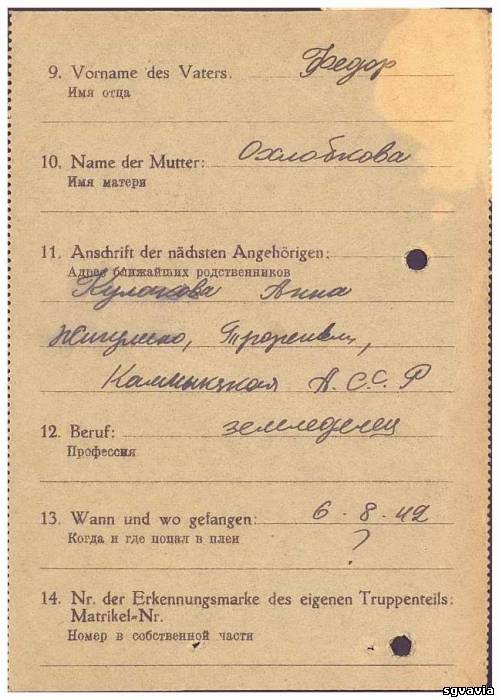 9. Vorname des Vaters. Федор
Имя отца
10. Name der Mutter: Охлобкова
Имя матери
11. Anschrift der nächsten Angehörigen:
Адрес ближайших родственников
Кулакова Анна
А.С.С.Р
12. Beruf: земледелец
Профессия
13. Wann und wo gefangen: 6.8.42
Когда и где попал в плен ?
14. Nr. der Erkennungsmarke des eigenen Truppenteils:
Matrikel-Nr.
Номер в собственной части
sgvavia